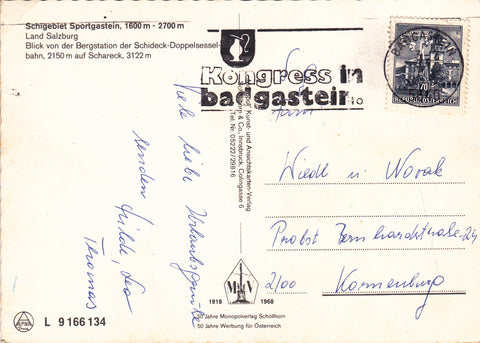 Schigebiet Sportgastein, 1600 m - 2700 m
Land Salzburg
Blick von der Bergstation der Schideck-Doppelsessel-
bahn, 2150 m auf Schareck, 3122 m
Kongress in
badgastein
BADGASTEIN
REPUBLIK ÖSTERREICH
Viele liebe Urlaubsgrüße
senden Hilde, Leo
Thomas
Kunst- und Ansichtskarten-Verlag
& Co., Innsbruck,
Tel. Nr. 05222/29816
Wiedl u. Novak
Probst Bernhardstraße 24
2100 Korneuburg
MV
1918 1968
50 Jahre Monopolverlag Schöllhorn
50 Jahre Werbung für Österreich
L 9 166 134